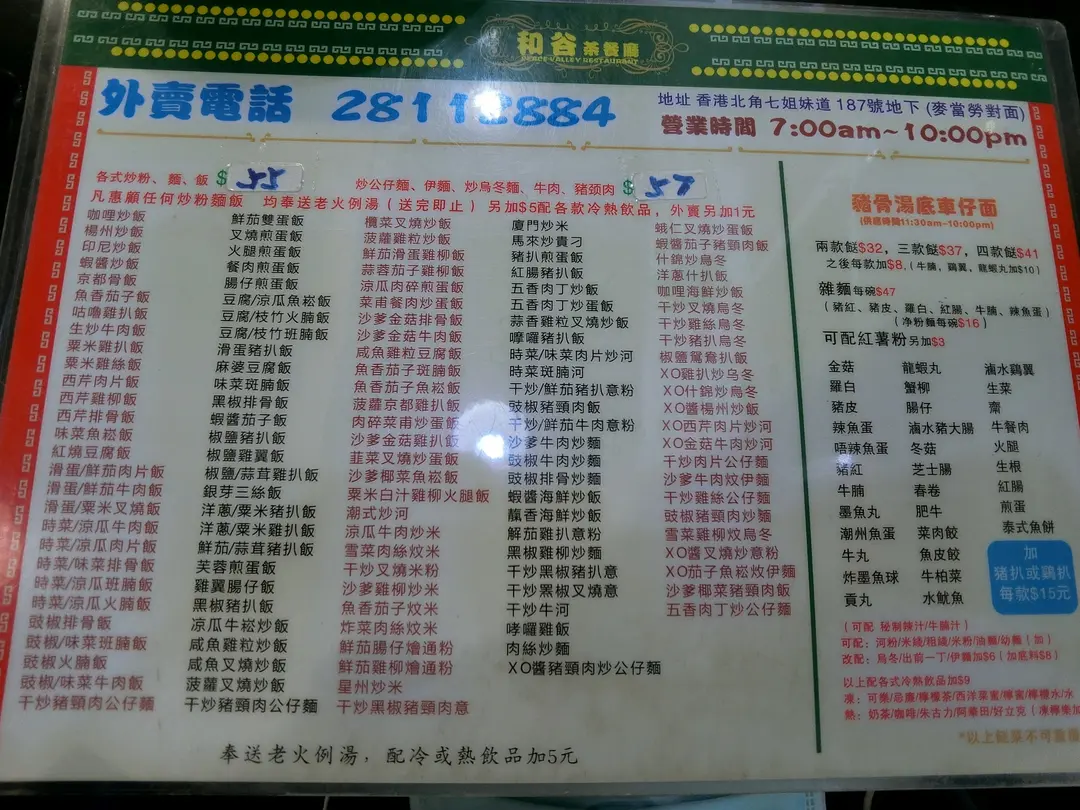 和谷茶餐廳
PEACE VALLEY RESTAURANT
外賣電話 28112884
地址 香港北角七姐妹道 187號地下 (麥當勞對面)
營業時間 7:00am~10:00pm
各式炒粉、麵、飯 $55
炒公仔麵、伊麵、炒烏冬麵、牛肉、豬颈肉 $57
凡惠顧任何炒粉麵飯 均奉送老火例湯 ( 送完即止 ) 另加$5配各款冷熱飲品，外賣另加1元
咖哩炒飯
楊州炒飯
印尼炒飯
蝦醬炒飯
京都骨飯
魚香茄子飯
咕嚕雞扒飯
生炒牛肉飯
粟米雞扒飯
粟米雞絲飯
西芹肉片飯
西芹雞柳飯
西芹排骨飯
味菜魚崧飯
紅燒豆腐飯
滑蛋/鮮茄肉片飯
滑蛋/鮮茄牛肉飯
滑蛋/粟米叉燒飯
時菜/涼瓜牛肉飯
時菜/涼瓜肉片飯
時菜/味菜排骨飯
時菜/涼瓜班腩飯
時菜/涼瓜火腩飯
豉椒排骨飯
豉椒/味菜班腩飯
豉椒火腩飯
豉椒/味菜牛肉飯
干炒豬頸肉公仔麵
鮮茄雙蛋飯
叉燒煎蛋飯
火腿煎蛋飯
餐肉煎蛋飯
腸仔煎蛋飯
豆腐/涼瓜魚崧飯
豆腐/枝竹火腩飯
豆腐/枝竹班腩飯
滑蛋豬扒飯
麻婆豆腐飯
味菜斑腩飯
黑椒排骨飯
蝦醬茄子飯
椒鹽豬扒飯
椒鹽雞翼飯
椒鹽/蒜茸雞扒飯
銀芽三絲飯
洋蔥/粟米豬扒飯
洋蔥/粟米雞扒飯
鮮茄/蒜茸豬扒飯
芙蓉煎蛋飯
雞翼腸仔飯
黑椒豬扒飯
凉瓜牛崧炒飯
咸魚雞粒炒飯
咸魚叉燒炒飯
菠蘿叉燒炒飯
干炒豬頸肉公仔麵
欖菜叉燒炒飯
菠蘿雞粒炒飯
鮮茄滑蛋雞柳飯
蒜蓉茄子雞柳飯
涼瓜肉碎煎蛋飯
菜甫餐肉炒蛋飯
沙爹金菇排骨飯
沙爹金菇牛肉飯
咸魚雞粒豆腐飯
魚香茄子斑腩飯
魚香茄子魚崧飯
菠蘿京都雞扒飯
肉碎菜甫炒蛋飯
沙爹金菇雞扒飯
韮菜叉燒炒蛋飯
沙爹椰菜魚崧飯
粟米白汁雞柳火腿飯
潮式炒河
涼瓜牛肉炒米
雪菜肉絲炆米
干炒叉燒米粉
沙爹雞柳炒米
魚香茄子炆米
炸菜肉絲炆米
鮮茄腸仔燴通粉
鮮茄雞柳燴通粉
星州炒米
干炒黑椒豬頸肉意
廈門炒米
馬來炒貴刁
豬扒煎蛋飯
紅腸豬扒飯
五香肉丁炒飯
五香肉丁炒蛋飯
蒜香雞粒叉燒炒飯
摩囉豬扒飯
時菜/味菜肉片炒河
時菜斑腩河
干炒/鮮茄豬扒意粉
豉椒豬頸肉飯
干炒/鮮茄牛肉意粉
沙爹牛肉炒麵
豉椒牛肉炒麵
豉椒排骨炒麵
蝦醬海鮮炒飯
蒜香海鮮炒飯
鮮茄雞扒意粉
黑椒雞柳炒麵
干炒黑椒豬扒意
干炒黑椒叉燒意
干炒牛河
哮囉雞飯
肉絲炒麵
XO醬豬頸肉炒公仔麵
蛾仁叉燒炒蛋飯
蝦醬茄子豬頸肉飯
什錦炒烏冬
洋蔥什扒飯
咖哩海鮮炒飯
干炒叉燒烏冬
干炒雞絲烏冬
干炒豬扒烏冬
椒鹽鴛鴦扒飯
XO雞扒炒烏冬
XO什錦炒烏冬
XO醬楊州炒飯
XO西芹肉片炒河
XO金菇牛肉炒河
干炒肉片公仔麵
沙爹牛肉炆伊麵
干炒雞絲公仔麵
豉椒豬頸肉炒麵
雪菜雞柳炆烏冬
XO醬叉燒炒意粉
XO茄子魚崧炆伊麵
沙爹椰菜豬頸肉飯
五香肉丁炒公仔麵
奉送老火例湯，配冷或熱飲品加5元
豬骨湯底車仔面
(供應時間11:30am~10:00pm)
兩款餸$32，三款餸$37，四款餸$41
之後每款加$8，(牛腩，鷄翼，龍蝦丸加$10)
雜麵每碗$47
( 豬紅、豬皮、羅白、紅腸、牛腩、辣魚蛋 )
( 净粉麵每碗$16 )
可配紅薯粉另加$3
金菇 龍蝦丸 滷水鷄翼
羅白 蟹柳 生菜
豬皮 腸仔 齋
辣魚蛋 滷水豬大腸 牛餐肉
唔辣魚蛋 冬菇 火腿
豬紅 芝士腸 生根
牛腩 春卷 紅腸
墨魚丸 肥牛 煎蛋
潮州魚蛋 菜肉餃 泰式魚餅
牛丸 魚皮餃
炸墨魚球 牛柏菜
貢丸 水魷魚
加
豬扒或鷄扒
每款$15元
( 可配 秘制辣汁/牛腩汁 )
可配：河粉/米綫/粗綫/米粉/油麵/幼麵 ( 加 )
改配：烏冬/出前一丁/伊麵加$6 ( 加底料$8 )
以上配各式冷熱飲品加$9
凍：可樂/忌廉/檸檬茶/西洋菜蜜/檸蜜/檸檬水/水
熱：奶茶/咖啡/朱古力/阿華田/好立克 ( 凍檸樂加
*以上餸菜不可重復